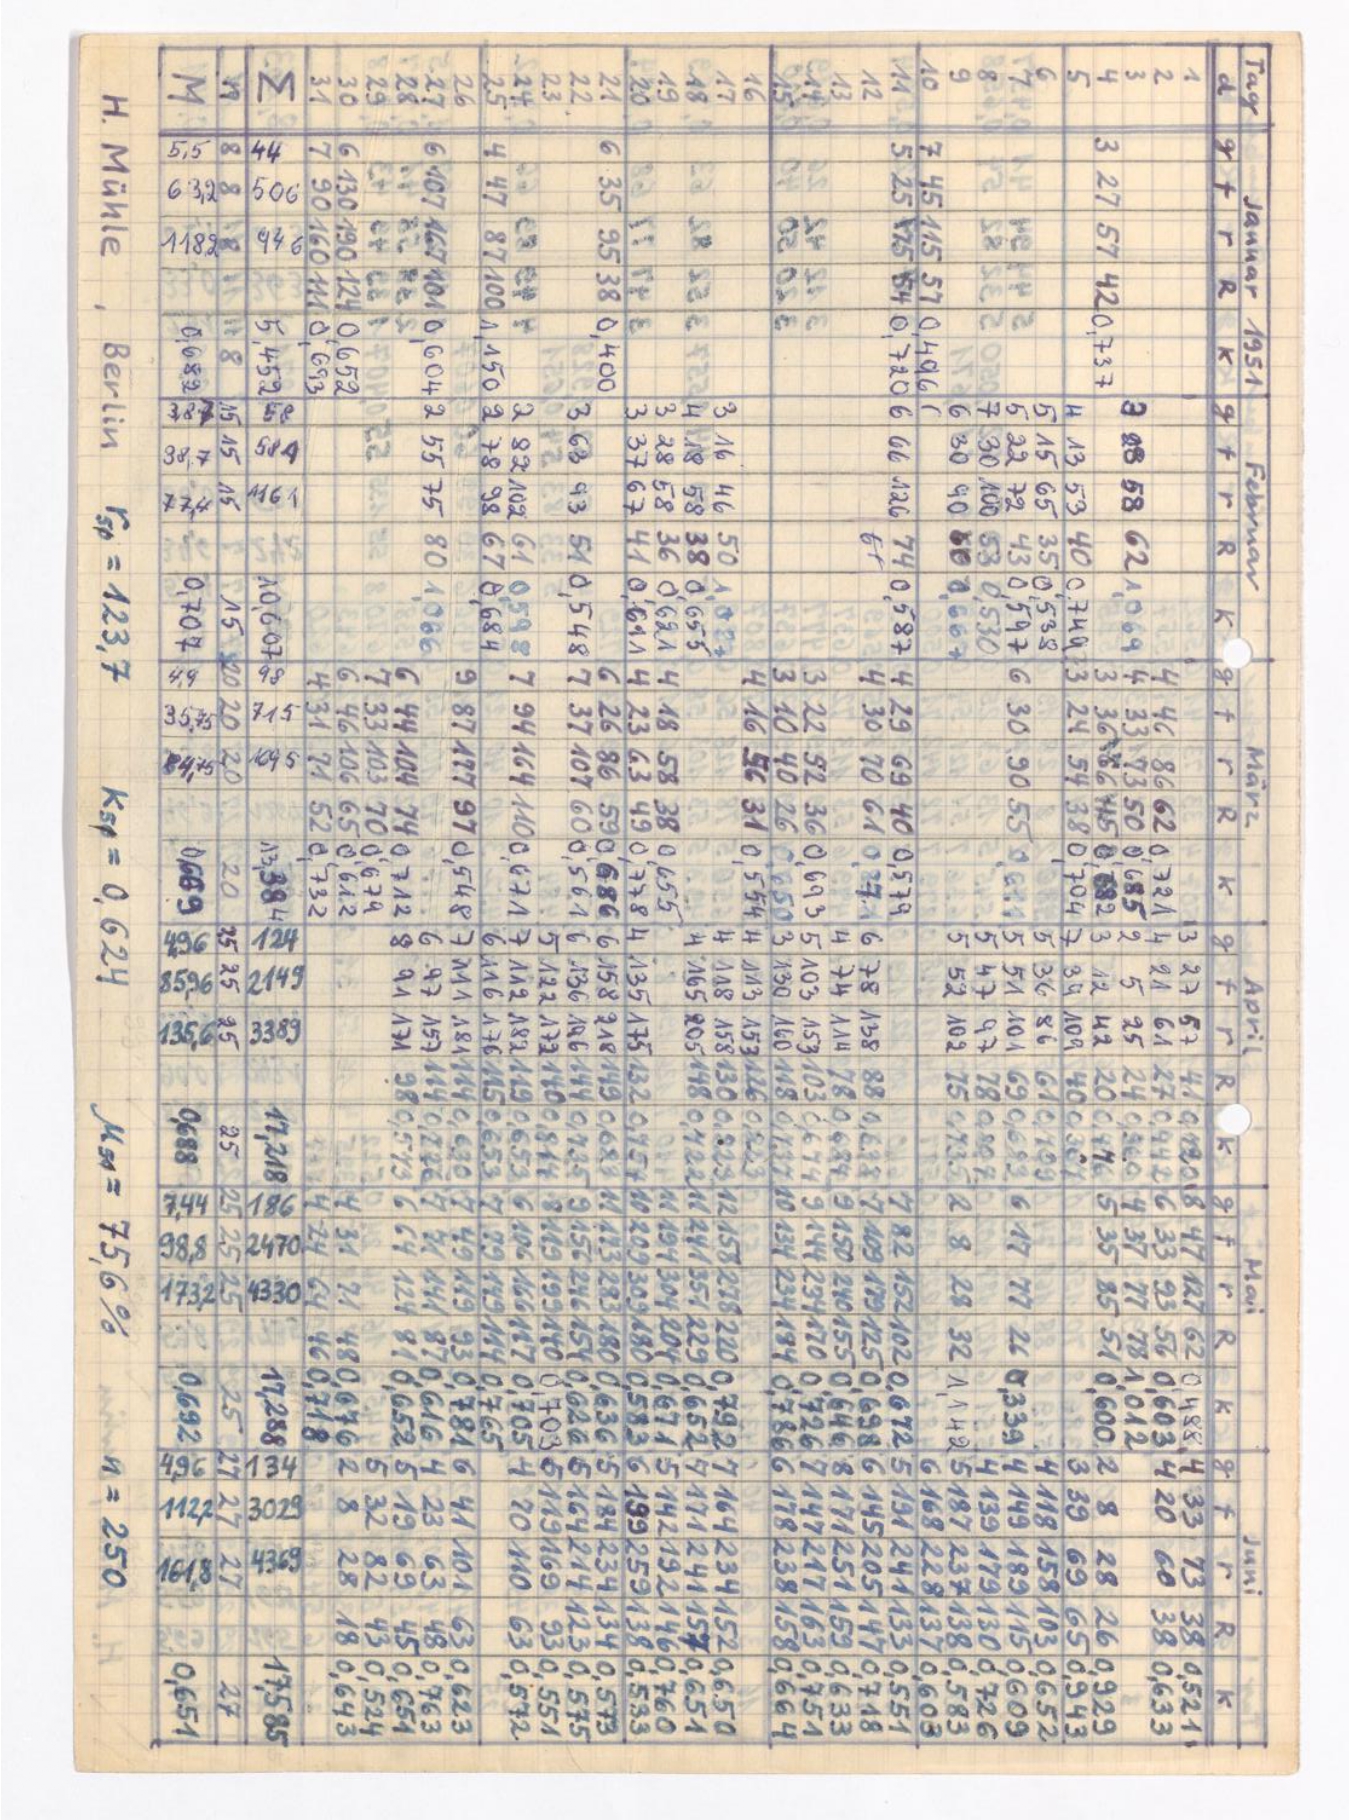 Tag Januar 1951 Februar März April Mai Juni
d g f r R K g f r R K g f r R K g f r R K g f r R K g f r R K
1 3 27 57 41 8 47 127 62 0,488 4 33 73 38 0,521
2 4 46 86 62 0,721 4 21 61 27 0,442 6 33 93 56 0,603 4 20 60 38 0,633
3 3 28 58 62 1,069 4 33 73 50 0,685 2 5 25 24 0,960 4 37 77 78 1,012
4 3 27 57 42 0,737 3 36 66 45 0,682 3 12 42 20 0,476 5 35 85 51 0,600 2 8 28 26 0,929
5 4 13 53 40 0,749 3 24 54 38 0,704 7 39 109 40 0,367 3 39 69 65 0,943
6 5 15 65 35 0,538 5 36 86 61 0,709 4 118 158 103 0,652
7 5 22 72 43 0,597 6 30 90 55 0,611 5 51 101 69 0,683 6 17 77 26 0,339 4 149 189 115 0,609
8 7 30 100 53 0,530 5 47 97 78 0,807 4 139 179 130 0,726
9 6 30 90 60 0,667 5 52 102 75 0,735 2 8 28 32 1,142 5 187 237 138 0,583
10 7 45 115 57 0,496 6 168 228 137 0,603
11 5 25 75 54 0,720 6 66 126 74 0,587 4 29 69 40 0,579 7 82 152 102 0,672 5 191 241 133 0,551
12 4 30 70 61 0,871 6 78 138 88 0,638 7 109 179 125 0,698 6 145 205 147 0,718
13 4 74 114 78 0,684 9 150 240 155 0,646 8 171 251 159 0,633
14 3 22 52 36 0,693 5 103 153 103 0,674 9 144 234 170 0,726 7 147 217 163 0,751
15 3 10 40 26 0,650 3 130 160 118 0,737 10 134 234 184 0,786 6 178 238 158 0,664
16 4 16 56 31 0,554 4 113 153 126 0,823
17 3 16 46 50 4 118 158 130 0,823 12 158 278 220 0,792 7 164 234 152 0,650
18 4 18 58 38 0,655 4 165 205 148 0,722 11 241 351 229 0,652 7 171 241 157 0,651
19 3 28 58 36 0,621 4 18 58 38 0,655 11 194 304 204 0,671 5 142 192 146 0,760
20 3 37 67 41 0,611 4 23 63 49 0,778 4 135 175 132 0,754 10 209 309 180 0,583 6 199 259 138 0,533
21 6 35 95 38 0,400 6 26 86 59 0,686 6 158 218 149 0,683 11 173 283 180 0,636 5 184 234 134 0,573
22 3 63 93 51 0,548 7 37 107 60 0,561 6 136 196 144 0,735 9 156 246 154 0,626 5 164 214 123 0,575
23 5 122 172 140 0,814 8 119 199 140 0,703 5 119 169 93 0,551
24 2 82 102 61 0,598 7 94 164 110 0,671 7 112 182 119 0,653 6 106 166 117 0,705 4 70 110 63 0,572
25 4 47 87 100 1,150 2 78 98 67 0,684 6 116 176 115 0,653 7 79 149 114 0,765
26 9 87 177 97 0,548 7 111 181 114 0,630 7 49 119 93 0,781 6 41 101 63 0,623
27 6 107 167 101 0,604 2 55 75 80 1,066 6 97 157 114 0,726 7 71 141 87 0,616 4 23 63 48 0,763
28 6 44 104 74 0,712 8 91 171 98 0,573 6 64 124 81 0,652 5 19 69 45 0,651
29 7 33 103 70 0,679 5 32 82 43 0,524
30 6 130 190 124 0,652 6 46 106 65 0,612 4 31 71 48 0,676 2 8 28 18 0,643
31 7 90 160 111 0,693 4 31 71 52 0,732 4 24 64 46 0,718
Σ 44 506 946 5,452 58 581 1161 10,607 98 715 1695 13,384 124 2149 3389 17,218 186 2470 4330 17,288 134 3029 4369 17,585
n 8 8 8 8 15 15 15 15 20 20 20 20 25 25 25 25 25 25 25 25 27 27 27 27
M 5,5 63,2 118,2 0,682 3,87 38,7 77,4 0,707 4,9 35,75 84,75 0,669 4,96 85,96 135,6 0,688 7,44 98,8 173,2 0,692 4,96 112,2 161,8 0,651
H. Mühle, Berlin rsp = 123,7 Ksp = 0,624 Msp = 75,6% n = 250